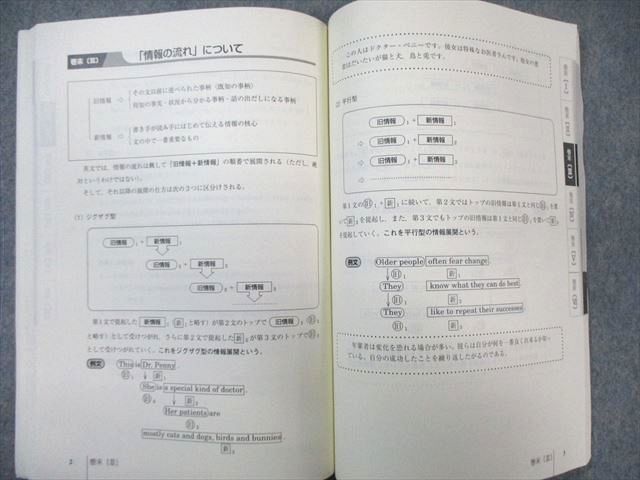 巻末〔Ⅲ〕 「情報の流れ」について
旧情報 ⇨ その文以前に述べられた事柄(既知の事柄)
周知の事実・状況から分かる事柄・話の出だしになる事柄
新情報 ⇨ 書き手が読み手にはじめて伝える情報の核心
文の中で一番重要なもの
英文では,情報の流れは概して「旧情報+新情報」の順番で展開される(ただし,絶
対というわけではない)。
そして,それ以降の展開の仕方は次の3つに区分けされる。
(1) ジグザグ型
旧情報 1 + 新情報 1
旧情報 2 + 新情報 2
旧情報 3 + 新情報 3
第1文で提起した 新情報 1 (新 1 と略す)が第2文のトップで 旧情報 2 (旧 2
と略す)として受けつがれ,さらに第2文で提起した 新 2 が第3文のトップで 旧 3
として受けつがれていく。これをジグザグ型の情報展開という。
例文 This is Dr. Penny.
旧 1 新 1
She is a special kind of doctor.
旧 2 新 2
Her patients are
旧 3
mostly cats and dogs, birds and bunnies.
新 3
2 巻末〔Ⅲ〕
この人はドクター・ペニーです。彼女は特殊なお医者さんです。彼女の患
者はだいたいが猫と犬,鳥と兎です。
(2) 平行型
旧情報 1 + 新情報 1
⇨ 旧情報 1 + 新情報 2
⇨ 旧情報 1 + 新情報 3
⇨
第1文の 旧 1 + 新 1 に続いて,第2文ではトップの旧情報は第1文と同じ 旧 1 を置
いて 新 2 を提起し,また,第3文でもトップの旧情報は第1文と同じ 旧 1 を置いて 新 3
を提起していく。これを平行型の情報展開という。
例文 Older people often fear change.
旧 1 新 1
They know what they can do best.
旧 1 新 2
They like to repeat their successes.
旧 1 新 3
年輩者は変化を恐れる場合が多い。彼らは自分が何を一番良く出来るか知っ
ている。自分の成功したことを繰り返したがるのである。
巻末〔Ⅲ〕 3